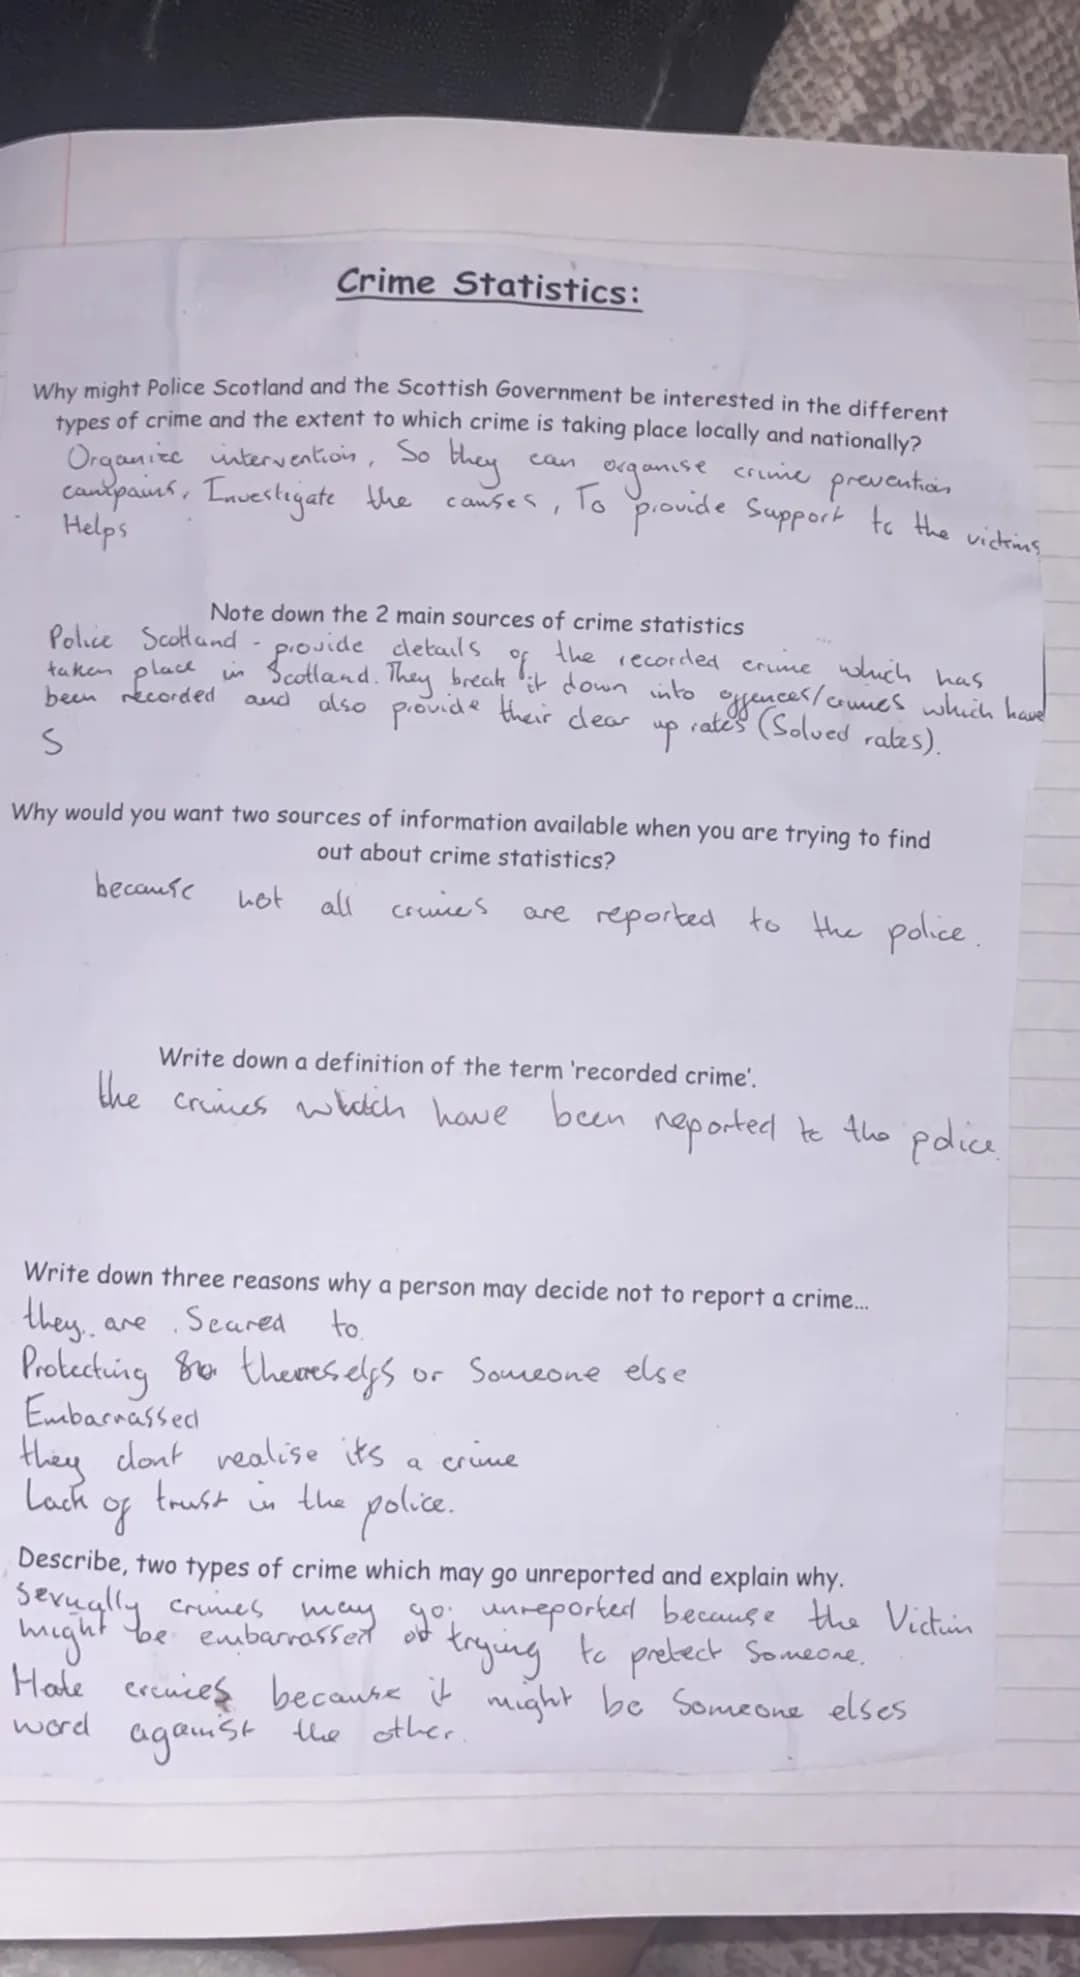 Crime Statistics:
Why might Police Scotland and the Scottish Government be interested in the different
types of crime and the extent to which crime is taking place locally and nationally?
Organize intervention, So they can organise crime prevention
campains, Investigate the causes, To provide Support to the victims
Helps
Note down the 2 main sources of crime statistics
Police Scotland - provide details of the recorded crime which has
taken place in Scotland. They break it down into offences/crimes which have
been recorded and also provide their clear up rates (Solved rates).
S
Why would you want two sources of information available when you are trying to find
out about crime statistics?
because not all crimes are reported to the police.
Write down a definition of the term 'recorded crime'.
the crimes which have been reported to the police.
Write down three reasons why a person may decide not to report a crime...
they are Scared to
Protecting themselfs or Someone else
Embarrassed
they dont realise its a crime
Lack of trust in the police.
Describe, two types of crime which may go unreported and explain why.
Sexually crimes may go unreported because the Victim
might be embarrassed trying to protect Someone.
Hate crimes because it might be Someone elses
word against the other.